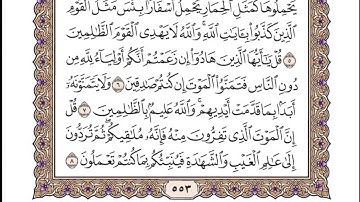 يَحْمِلُوهَا كَمَثَلِ ٱلْحِمَارِ يَحْمِلُ أَسْفَارَۢا بِئْسَ مَثَلُ ٱلْقَوْمِ
ٱلَّذِينَ كَذَّبُوا۟ بِـَٔايَٰتِ ٱللَّهِ ۚ وَٱللَّهُ لَا يَهْدِى ٱلْقَوْمَ ٱلظَّٰلِمِينَ
٥ قُلْ يَٰٓأَيُّهَا ٱلَّذِينَ هَادُوٓا۟ إِن زَعَمْتُمْ أَنَّكُمْ أَوْلِيَآءُ لِلَّهِ مِن
دُونِ ٱلنَّاسِ فَتَمَنَّوُا۟ ٱلْمَوْتَ إِن كُنتُمْ صَٰدِقِينَ ٦ وَلَا يَتَمَنَّوْنَهُۥٓ
أَبَدَۢا بِمَا قَدَّمَتْ أَيْدِيهِمْ ۚ وَٱللَّهُ عَلِيمٌۢ بِٱلظَّٰلِمِينَ ٧ قُلْ
إِنَّ ٱلْمَوْتَ ٱلَّذِى تَفِرُّونَ مِنْهُ فَإِنَّهُۥ مُلَٰقِيكُمْ ۖ ثُمَّ تُرَدُّونَ
إِلَىٰ عَٰلِمِ ٱلْغَيْبِ وَٱلشَّهَٰدَةِ فَيُنَبِّئُكُم بِمَا كُنتُمْ تَعْمَلُونَ ٨
٥٥٣